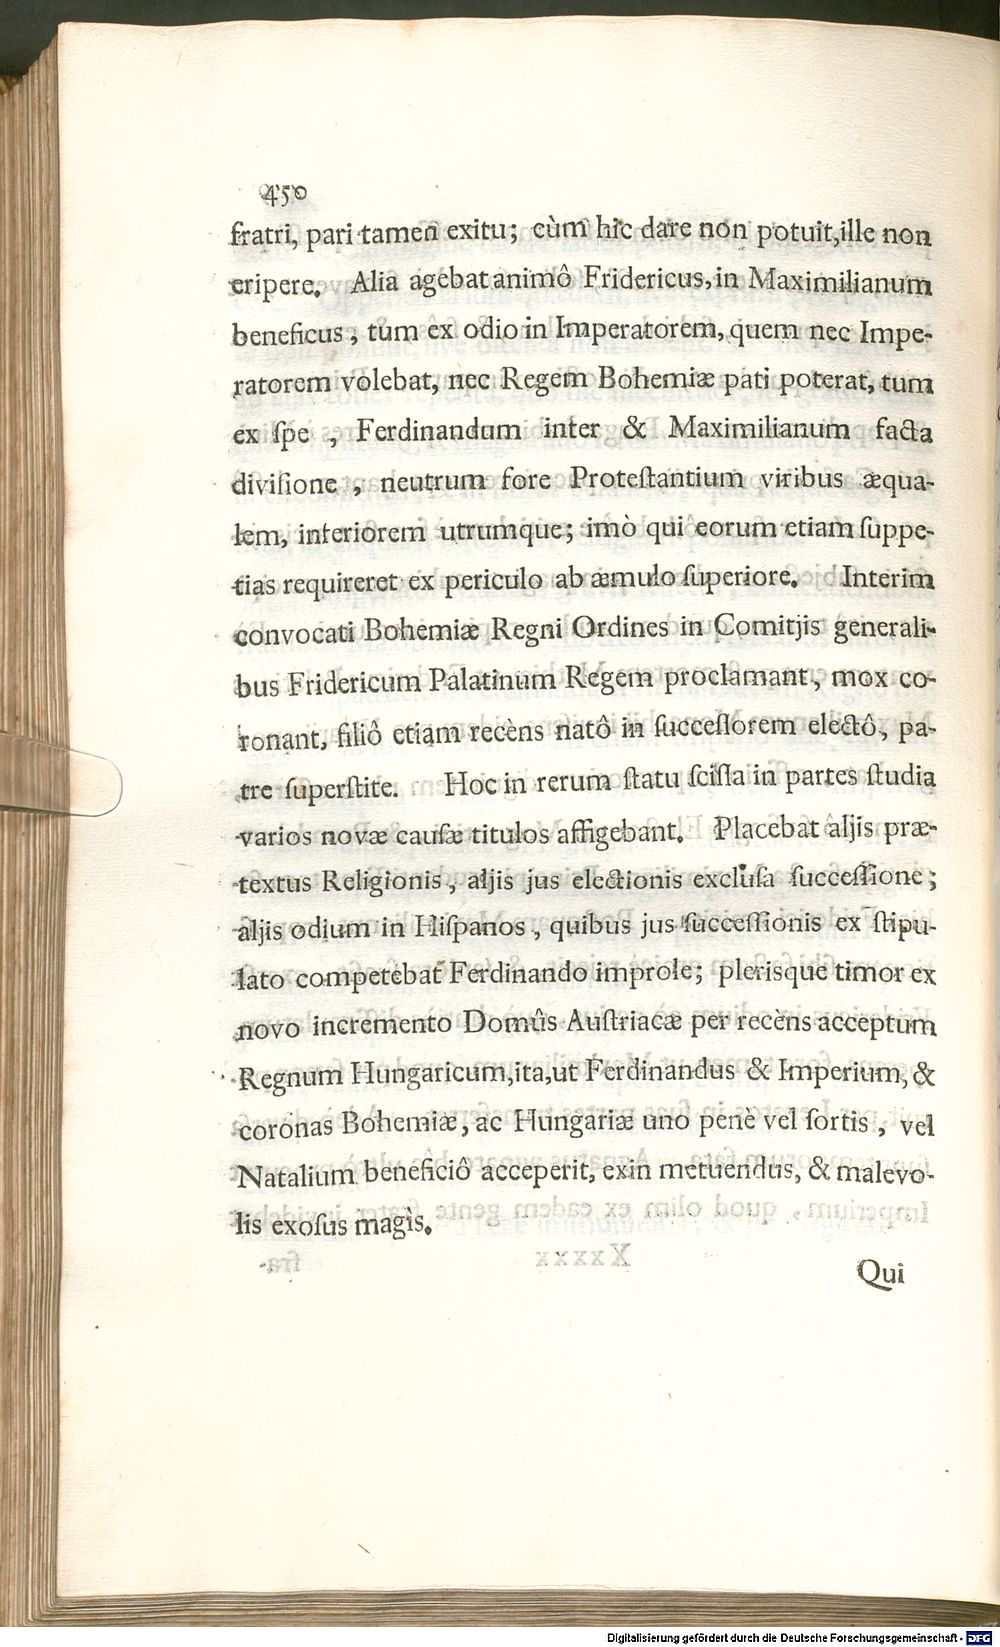 450
fratri, pari tamen exitu; cùm hic dare non potuit, ille non
eripere. Alia agebat animô Fridericus, in Maximilianum
beneficus, tum ex odio in Imperatorem, quem nec Impe-
ratorem volebat, nec Regem Bohemiæ pati poterat, tum
ex ſpe, Ferdinandum inter & Maximilianum facta
diviſione, neutrum fore Proteſtantium viribus æqua-
lem, interiorem utrumque; imò qui eorum etiam ſuppe-
tias requireret ex periculo ab æmulo ſuperiore. Interim
convocati Bohemiæ Regni Ordines in Comitjis generali-
bus Fridericum Palatinum Regem proclamant, mox co-
ronant, filiô etiam recèns natô in ſucceſſorem electô, pa-
tre ſuperſtite. Hoc in rerum ſtatu ſciſſa in partes ſtudia
varios novæ cauſæ titulos affigebant. Placebat aljis præ-
textus Religionis, aljis jus electionis excluſa ſucceſſione;
aljis odium in Hiſpanos, quibus jus ſucceſſionis ex ſtipu-
lato competebat Ferdinando improle; plerisque timor ex
novo incremento Domûs Auſtriacæ per recèns acceptum
Regnum Hungaricum, ita, ut Ferdinandus & Imperium, &
coronas Bohemiæ, ac Hungariæ uno penè vel ſortis, vel
Natalium beneficiô acceperit, exin metuendus, & malevo-
lis exoſus magìs.
Qui
Digitalisierung gefördert durch die Deutsche Forschungsgemeinschaft - DFG